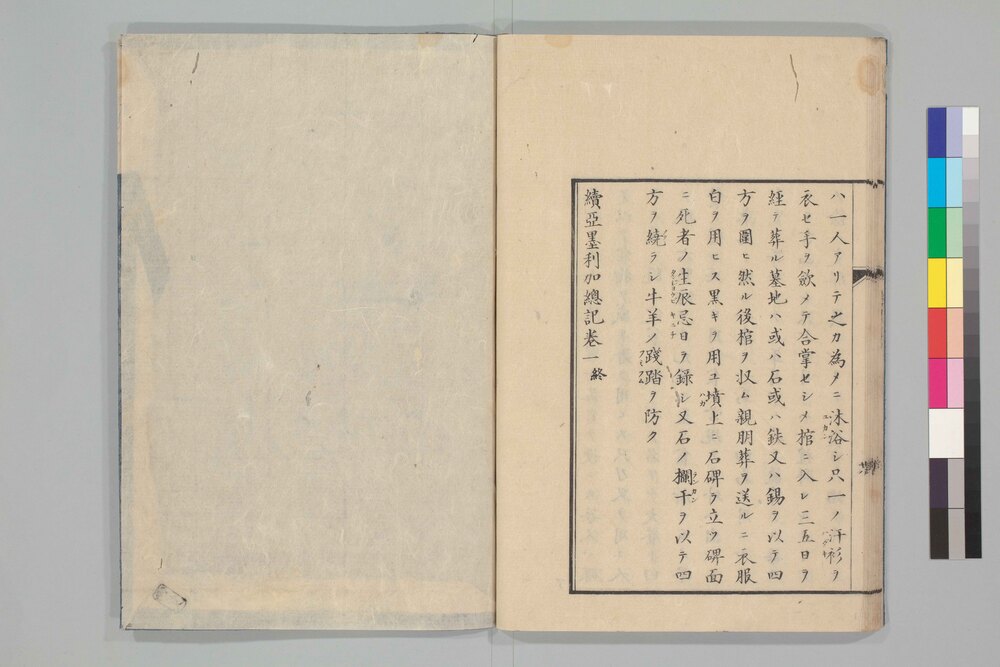 ハ一人アリテ之カ為メニ沐浴シ只一ノ汗衫ヲ
衣セ手ヲ斂メテ合掌セシメ棺ニ入レ三五日ヲ
経テ葬ル墓地ハ或ハ石或ハ鉄又ハ錫ヲ以テ四
方ヲ圍ヒ然ル後棺ヲ収ム親朋葬ヲ送ルニ衣服
白ヲ用ヒス黒キヲ用ユ墳上ニ石碑ヲ立ツ碑面
ニ死者ノ生辰忌日ヲ録シ又石ノ欄干ヲ以テ四
方ヲ繞ラシ牛羊ノ踐踏ヲ防ク
續亞墨利加總記巻一終